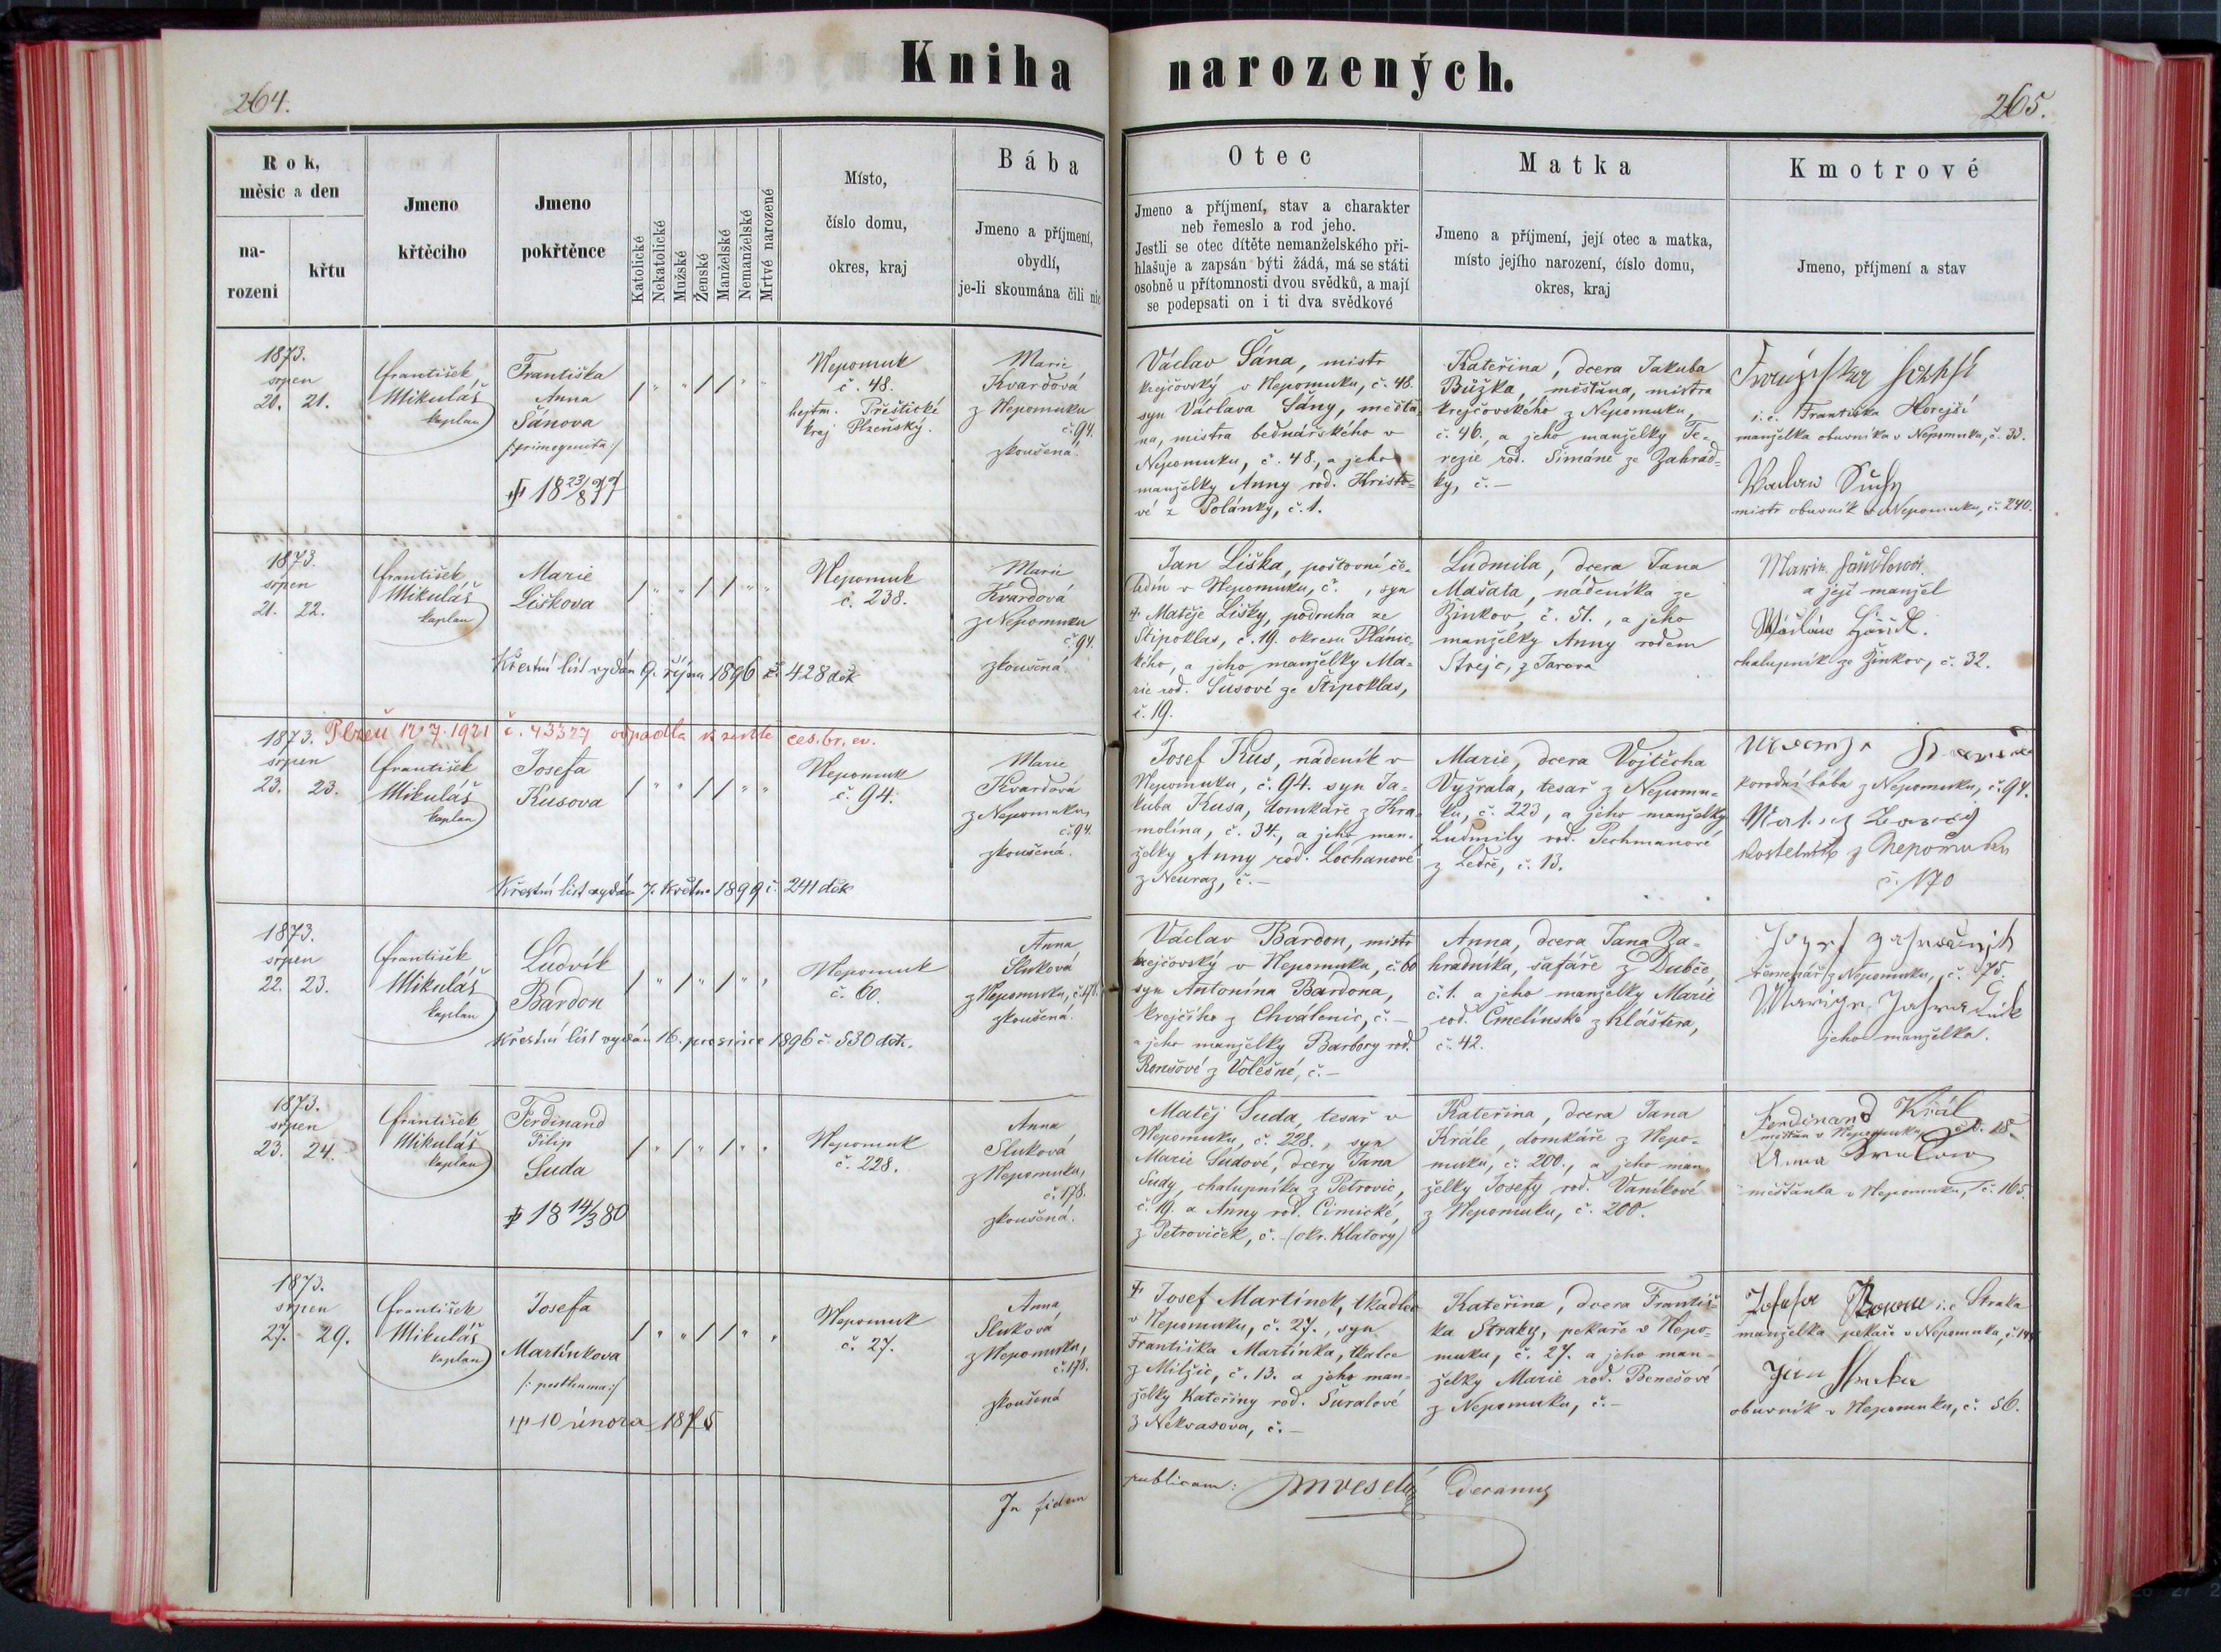 Kniha narozených.
264.
265.
Rok,
měsíc a den
na-
rozeni
křtu
Jmeno
křtěcího
Jmeno
pokřtěnce
Katolické
Nekatolické
Mužské
Ženské
Manželské
Nemanželské
Mrtvé narozené
Místo,
číslo domu,
okres, kraj
Bába
Jmeno a příjmení,
obydlí,
je-li skoumána čili nic
Otec
Jmeno a příjmení, stav a charakter
neb řemeslo a rod jeho.
Jestli se otec dítěte nemanželského při-
hlašuje a zapsán býti žádá, má se státi
osobně u přítomnosti dvou svědků, a mají
se podepsati on i ti dva svědkové
Matka
Jmeno a příjmení, její otec a matka,
místo jejího narození, číslo domu,
okres, kraj
Kmotrové
Jmeno, příjmení a stav
1873.
srpen
20. 21.
František
Mikuláš
kaplan
Františka
Anna
Šánova
/:primogenita:/
† 18 23/8 77
Nepomuk
č. 48.
hejtm. Přeštické
kraj Plzeňský.
Marie
Kvardová
z Nepomuku
č. 94.
zkoušená.
Václav Šána, mistr
krejčovský v Nepomuku, č. 48.
syn Václava Šány, měšťa-
na, mistra bednářského v
Nepomuku, č. 48., a jeho
manželky Anny rod. Kristo-
vé z Polánky, č. 1.
Kateřina, dcera Jakuba
Bůžka, měšťana, mistra
krejčovského z Nepomuku,
č. 46., a jeho manželky Te-
rezie rod. Šimáně ze Zahrád-
ky, č. –
i. e. Františka Horejší
manželka obuvníka v Nepomuku, č. 33.
Waclaw Suchy
mistr obuvník v Nepomuku, č. 240.
1873.
srpen
21. 22.
František
Mikuláš
kaplan
Marie
Liškova
Nepomuk
č. 238.
Marie
Kvardová
z Nepomuku
č. 94.
zkoušená
Křestní list vydán 9. října 1896 č. 428 děk
Jan Liška, poštovní če-
ledín v Nepomuku, č. , syn
† Matěje Lišky, podruha ze
Štipoklas, č. 19. okresu Plánic-
kého, a jeho manželky Ma-
rie rod. Šusové ze Štipoklas,
č. 19.
Ludmila, dcera Jana
Mašata, nádeníka ze
Žinkov, č. 51., a jeho
manželky Anny rodem
Strejc, z Jarova
a její manžel
chalupník ze Žinkov, č. 32.
Plzeň 12/7. 1921 č. 43327 odpadla k sektě čes. br. ev.
1873.
srpen
23. 23.
František
Mikuláš
kaplan
Josefa
Kusova
Nepomuk
č. 94.
Marie
Kvardová
z Nepomuku,
č. 94.
zkoušená.
Křestní list vydán 7. Května 1899 č. 241 děk
Josef Kus, nádeník v
Nepomuku, č. 94. syn Ja-
kuba Kusa, domkáře z Kra-
molína, č. 34., a jeho man-
želky Anny rod. Lochanové
z Neuraz, č. –
Marie, dcera Vojtěcha
Vyžrala, tesař z Nepomu-
ku, č. 223, a jeho manželky
Ludmily rod. Pechmanové
z Ledče, č. 13.
porodní bába z Nepomuku, č. 94.
kostelník z Nepomuku
č. 170
1873.
srpen
22. 23.
František
Mikuláš
kaplan
Ludvík
Bardon
Nepomuk
č. 60.
Anna
Sluková
z Nepomuku, č. 178.
zkoušená.
Křestní list vydán 16. prosince 1896 č. 530 děk.
Václav Bardon, mistr
krejčovský v Nepomuku, č. 60
syn Antonína Bardona,
krejčího z Chválenic, č. –
a jeho manželky Barbory rod.
z Volešné, č. –
Anna, dcera Jana Za-
hradníka, šafáře z Dubče,
č. 1. a jeho manželky Marie
rod. Čmelínské z Kláštera,
č. 42.
řemenář z Nepomuku, č. 175.
jeho manželka.
1873.
srpen
23. 24.
František
Mikuláš
kaplan
Ferdinand
Filip
Suda
† 18 14/3 80
Nepomuk
č. 228.
Anna
Sluková
z Nepomuku,
č. 178.
zkoušená.
Matěj Suda, tesař v
Nepomuku, č. 228., syn
Marie Sudové, dcery Jana
Sudy, chalupníka z Petrovic,
č. 19. a Anny rod. Cimické,
z Petroviček, č. – (okr. Klatovy)
Kateřina, dcera Jana
Krále, domkáře z Nepo-
muku, č. 200., a jeho man-
želky Josefy rod. Vaníkové
z Nepomuku, č. 200.
Ferdinand Král
měšťan v Nepomuku č. 18.
Anna
měšťanka v Nepomuku, č. 165.
1873.
srpen
27. 29.
František
Mikuláš
kaplan
Josefa
Martínkova
/: posthuma:/
† 10 února 1875
Nepomuk
č. 27.
Anna
Sluková
z Nepomuku,
č. 178.
zkoušená
† Josef Martínek, tkadlec
v Nepomuku, č. 27., syn
Františka Martínka, tkalce
z Milžic, č. 13. a jeho man-
želky Kateřiny rod. Šuralové
z Nekvasova, č. –
Kateřina, dcera Františ-
ka Straky, pekaře v Nepo-
muku, č. 27. a jeho man-
želky Marie rod. Benešové
z Nepomuku, č. –
i. e. Straka
manželka pekaře v Nepomuku,
obuvník v Nepomuku, č. 56.
In fidem
publicam: Decanus